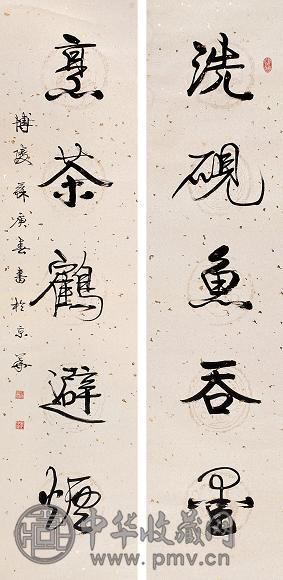 洗砚鱼吞墨
烹茶鶴避煙
博陵蘇庚春書於京華
中华收藏网
www.pmv.cn